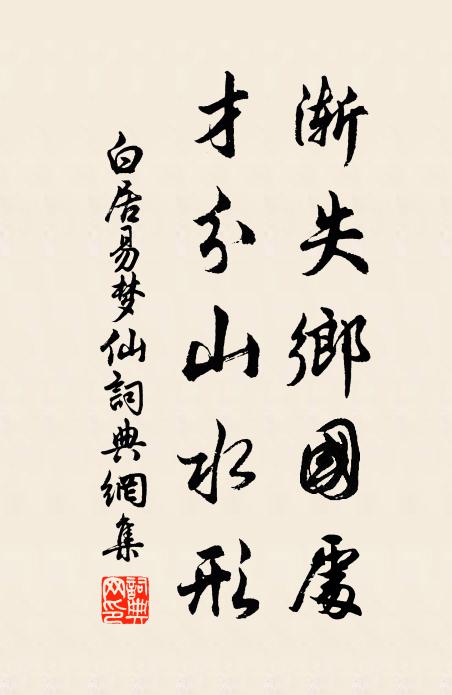 漸失鄉國處
才分山水形
白居易梦仙詞典網集
詞典网印